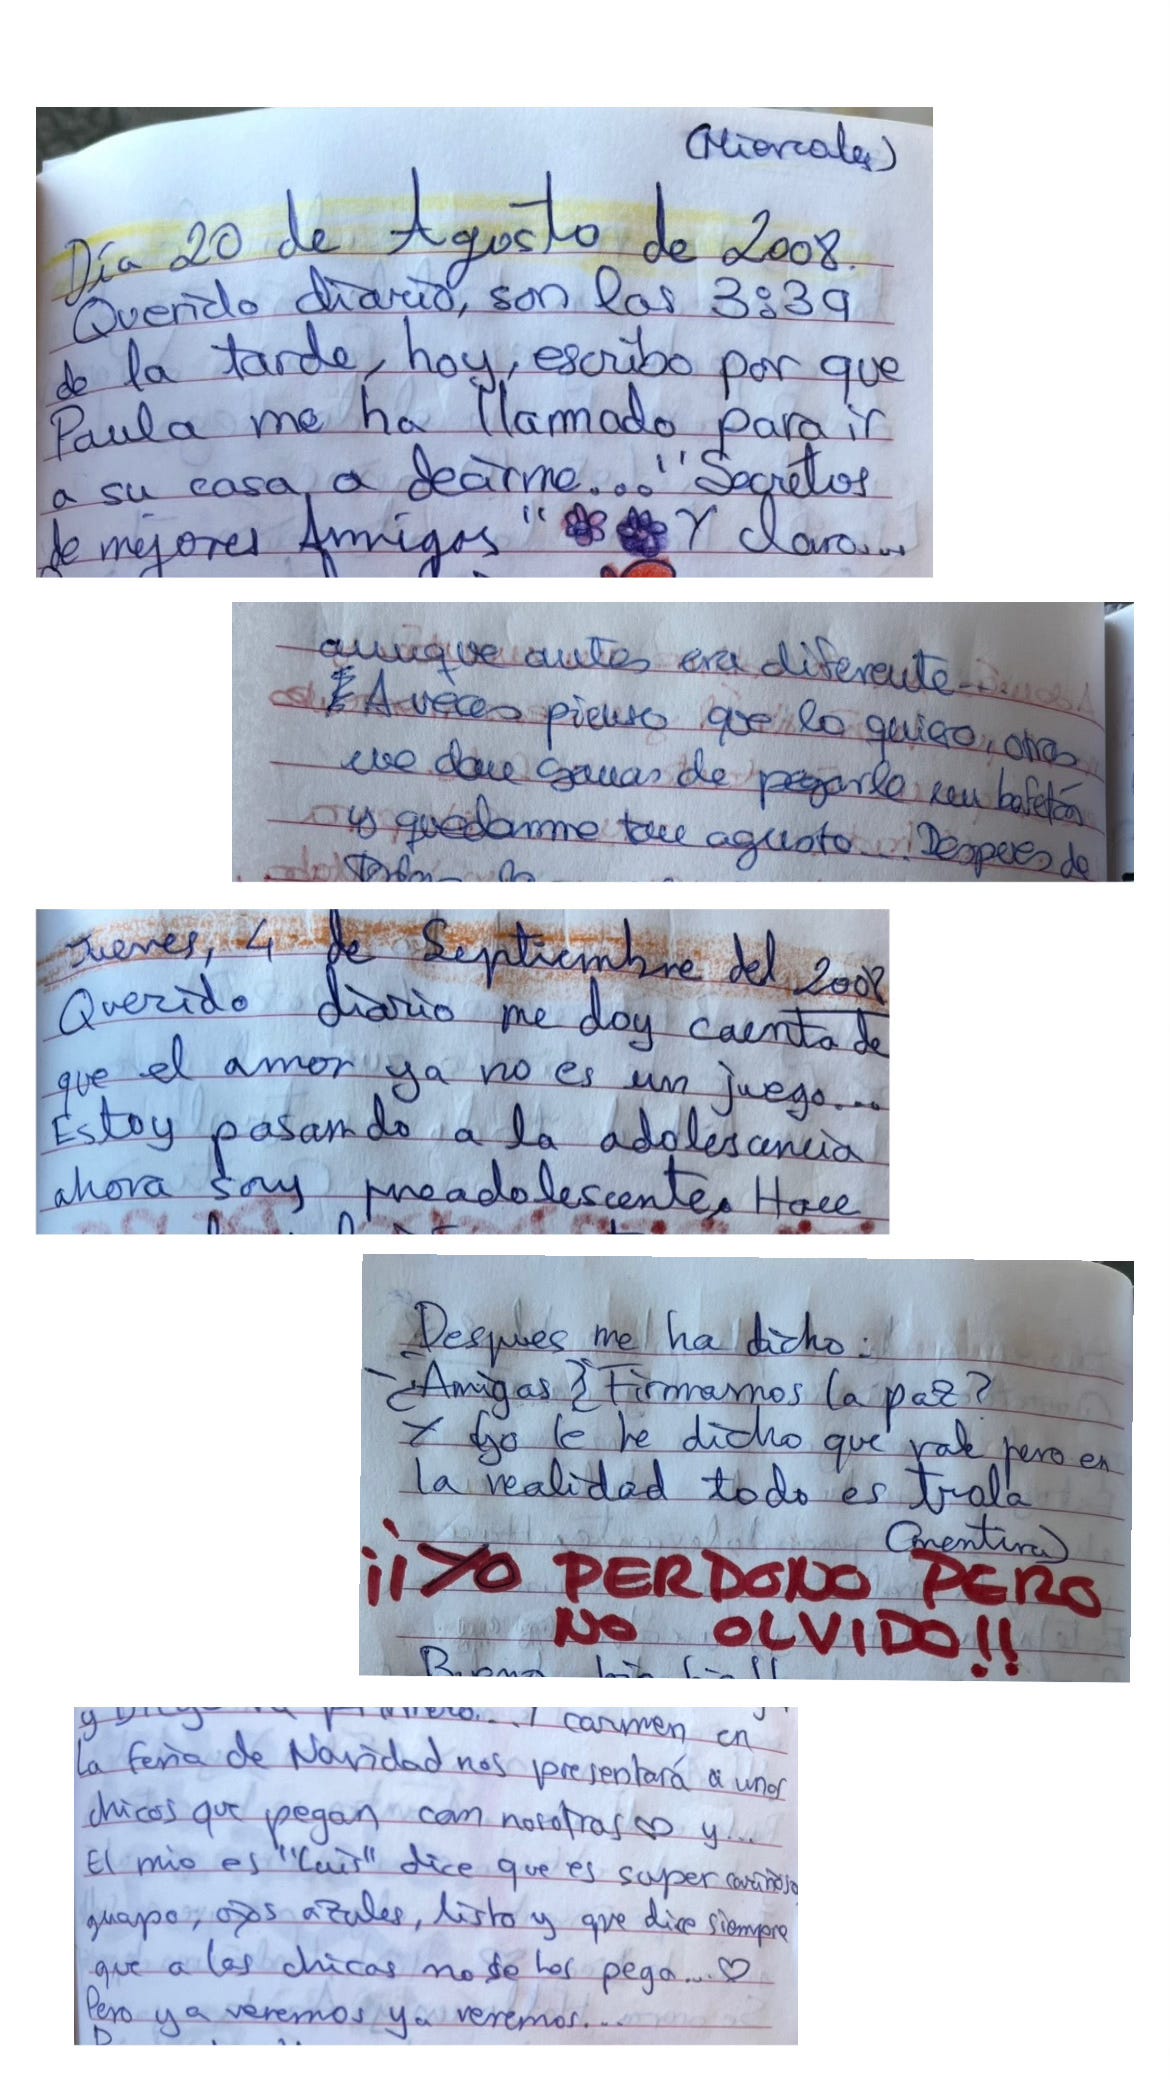 (Miercoles)
Día 20 de Agosto de 2008.
Querido diario, son las 3:39
de la tarde, hoy, escribo por que
Paula me ha llamado para ir
a su casa a decirme... "Secretos
de mejores Amigas" Y claro...
aunque antes era diferente...
A veces pienso que lo quiero, otras
me dan ganas de pegarle un bofetón
y quedarme tan agusto... Despues de
Jueves, 4 de Septiembre del 2008
Querido diario me doy caenta de
que el amor ya no es un juego...
Estoy pasando a la adolescencia
ahora soy preadolescente. Hace
Despues me ha dicho:
-¿Amigas? ¿Firmamos la paz?
Y yo le he dicho que vale pero en
la realidad todo es trola
(mentira)
¡¡YO PERDONO PERO
NO OLVIDO!!
y carmen en
la feria de Navidad nos presentará a unos
chicos que pegan con nosotras ♡ y...
El mio es "Luis" dice que es super cariñoso
guapo, ojos azules, listo y que dice siempre
que a las chicas no se las pega... ♡
Pero ya veremos ya veremos...